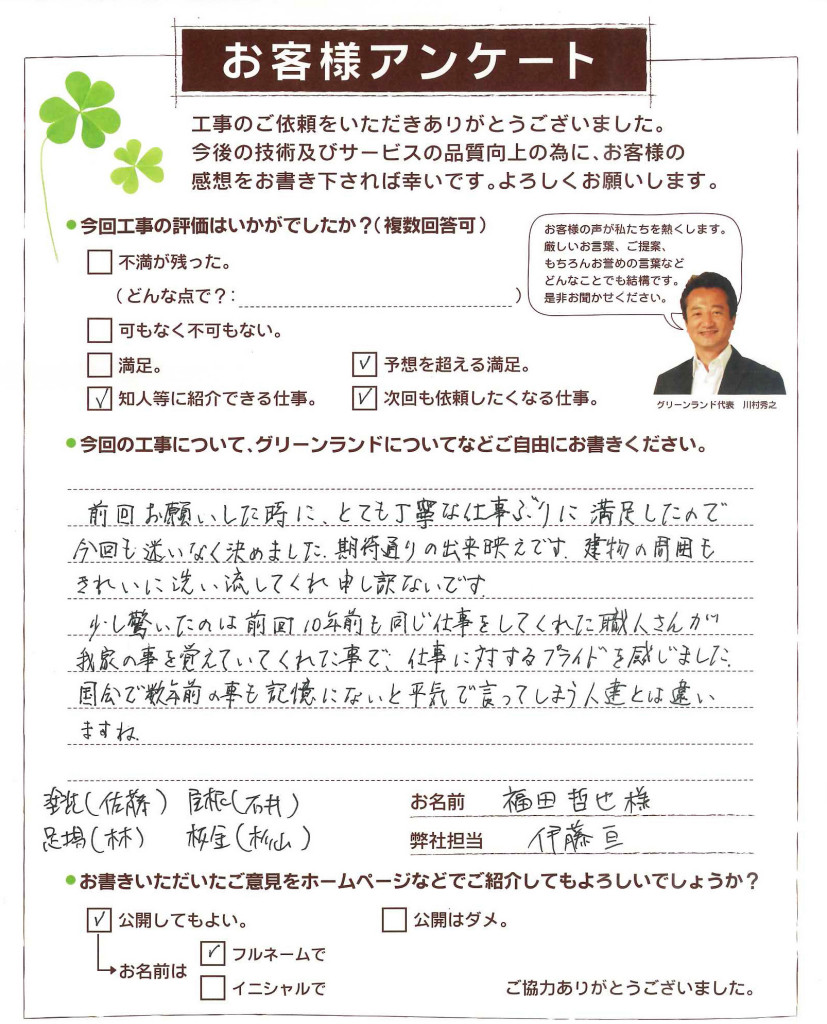 お客様アンケート
工事のご依頼をいただきありがとうございました。
今後の技術及びサービスの品質向上の為に、お客様の
感想をお書き下されば幸いです。よろしくお願いします。
●今回工事の評価はいかがでしたか?(複数回答可)
不満が残った。
(どんな点で?: )
可もなく不可もない。
満足。
✓予想を超える満足。
✓知人等に紹介できる仕事。
✓次回も依頼したくなる仕事。
お客様の声が私たちを熱くします。
厳しいお言葉、ご提案、
もちろんお誉めの言葉など
どんなことでも結構です。
是非お聞かせください。
グリーンランド代表 川村秀之
●今回の工事について、グリーンランドについてなどご自由にお書きください。
前回お願いした時に、とても丁寧な仕事ぶりに満足したので
今回も迷いなく決めました。期待通りの出来映えです。建物の周囲も
きれいに洗い流してくれ申し訳ないです
少し驚いたのは前回10年前も同じ仕事をしてくれた職人さんが
我家の事を覚えていてくれた事で、仕事に対するプライドを感じました。
国会で数年前の事も記憶にないと平気で言ってしまう人達とは違い
ますね。
塗装(佐藤) 屋根(石井)
足場(林) 板金(杉山)
お名前 福田哲也様
弊社担当 伊藤亘
●お書きいただいたご意見をホームページなどでご紹介してもよろしいでしょうか?
✓公開してもよい。
公開はダメ。
お名前は
✓フルネームで
イニシャルで
ご協力ありがとうございました。